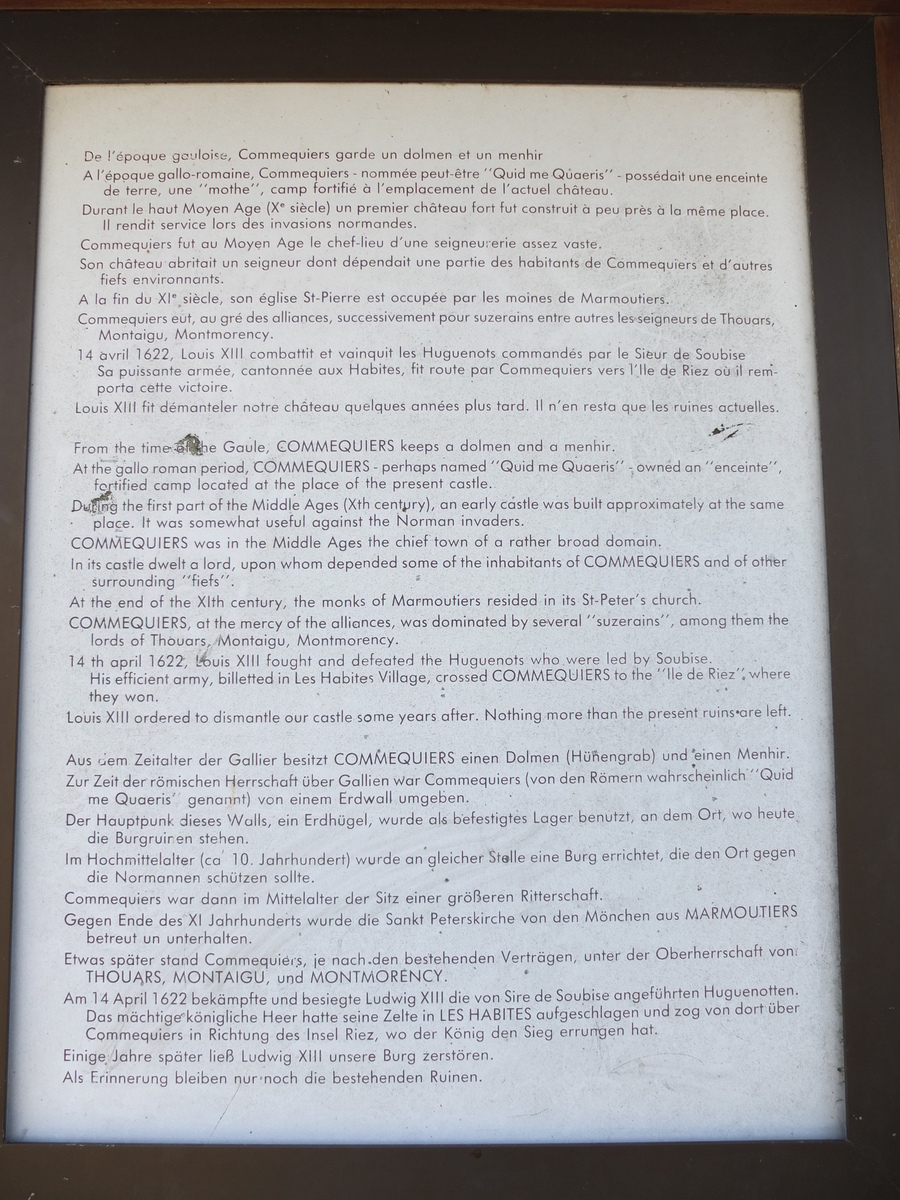 De l'époque gauloise, Commequiers garde un dolmen et un menhir
A l'époque gallo-romaine, Commequiers - nommée peut-être "Quid me Quaeris" - possédait une enceinte
de terre, une "mothe", camp fortifié à l'emplacement de l'actuel château.
Durant le haut Moyen Age (Xe siècle) un premier château fort fut construit à peu près à la même place.
Il rendit service lors des invasions normandes.
Commequiers fut au Moyen Age le chef-lieu d'une seigneurerie assez vaste.
Son château abritait un seigneur dont dépendait une partie des habitants de Commequiers et d'autres
fiefs environnants.
A la fin du XIe siècle, son église St-Pierre est occupée par les moines de Marmoutiers.
Commequiers eut, au gré des alliances, successivement pour suzerains entre autres les seigneurs de Thouars,
Montaigu, Montmorency.
14 avril 1622, Louis XIII combattit et vainquit les Huguenots commandés par le Sieur de Soubise
Sa puissante armée, cantonnée aux Habites, fit route par Commequiers vers l'Ile de Riez où il rem-
porta cette victoire.
Louis XIII fit démanteler notre château quelques années plus tard. Il n'en resta que les ruines actuelles.
From the time of the Gaule, COMMEQUIERS keeps a dolmen and a menhir.
At the gallo roman period, COMMEQUIERS - perhaps named "Quid me Quaeris" - owned an "enceinte",
fortified camp located at the place of the present castle.
During the first part of the Middle Ages (Xth century), an early castle was built approximately at the same
place. It was somewhat useful against the Norman invaders.
COMMEQUIERS was in the Middle Ages the chief town of a rather broad domain.
In its castle dwelt a lord, upon whom depended some of the inhabitants of COMMEQUIERS and of other
surrounding "fiefs".
At the end of the XIth century, the monks of Marmoutiers resided in its St-Peter's church.
COMMEQUIERS, at the mercy of the alliances, was dominated by several "suzerains", among them the
lords of Thouars, Montaigu, Montmorency.
14 th april 1622, Louis XIII fought and defeated the Huguenots who were led by Soubise.
His efficient army, billetted in Les Habites Village, crossed COMMEQUIERS to the "Ile de Riez", where
they won.
Louis XIII ordered to dismantle our castle some years after. Nothing more than the present ruins are left.
Aus dem Zeitalter der Gallier besitzt COMMEQUIERS einen Dolmen (Hünengrab) und einen Menhir.
Zur Zeit der römischen Herrschaft über Gallien war Commequiers (von den Römern wahrscheinlich "Quid
me Quaeris" genannt) von einem Erdwall umgeben.
Der Hauptpunk dieses Walls, ein Erdhügel, wurde als befestigtes Lager benutzt, an dem Ort, wo heute
die Burgruinen stehen.
Im Hochmittelalter (ca 10. Jahrhundert) wurde an gleicher Stelle eine Burg errichtet, die den Ort gegen
die Normannen schützen sollte.
Commequiers war dann im Mittelalter der Sitz einer größeren Ritterschaft.
Gegen Ende des XI Jahrhunderts wurde die Sankt Peterskirche von den Mönchen aus MARMOUTIERS
betreut un unterhalten.
Etwas später stand Commequiers, je nach den bestehenden Verträgen, unter der Oberherrschaft von
THOUARS, MONTAIGU, und MONTMORENCY.
Am 14 April 1622 bekämpfte und besiegte Ludwig XIII die von Sire de Soubise angeführten Huguenotten.
Das mächtige königliche Heer hatte seine Zelte in LES HABITES aufgeschlagen und zog von dort über
Commequiers in Richtung des Insel Riez, wo der König den Sieg errungen hat.
Einige Jahre später ließ Ludwig XIII unsere Burg zerstören.
Als Erinnerung bleiben nur noch die bestehenden Ruinen.